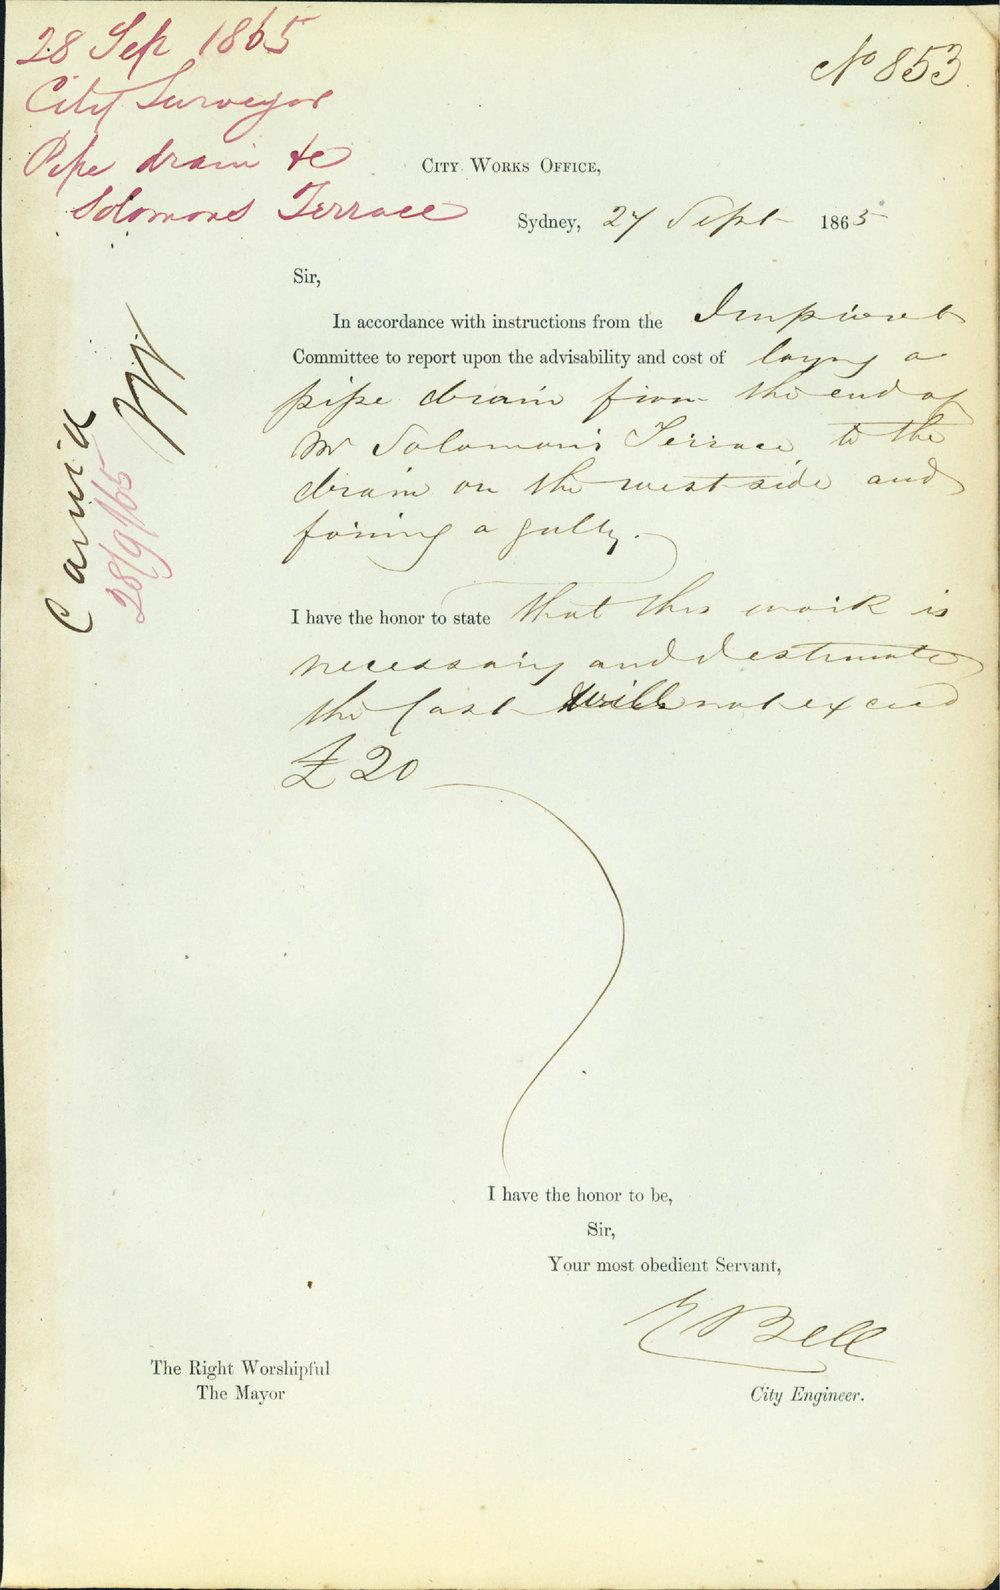 28 Sep 1865
City Surveyor
Pipe drain &c
Solomons Terrace
No 853
City Works Office,
Sydney, 27 Sept 1865
Sir,
In accordance with instructions from the Impromt
Committee to report upon the advisability and cost of laying a
pipe drain from the end of
Mr Solomon's Terrace to the
drain on the west side and
forming a gully.
I have the honor to state that this work is
necessary and I estimate
the Cost will not exceed
£20
Carried
28/9/65
I have the honor to be,
Sir,
Your most obedient Servant,
E Bell
City Engineer.
The Right Worshipful
The Mayor